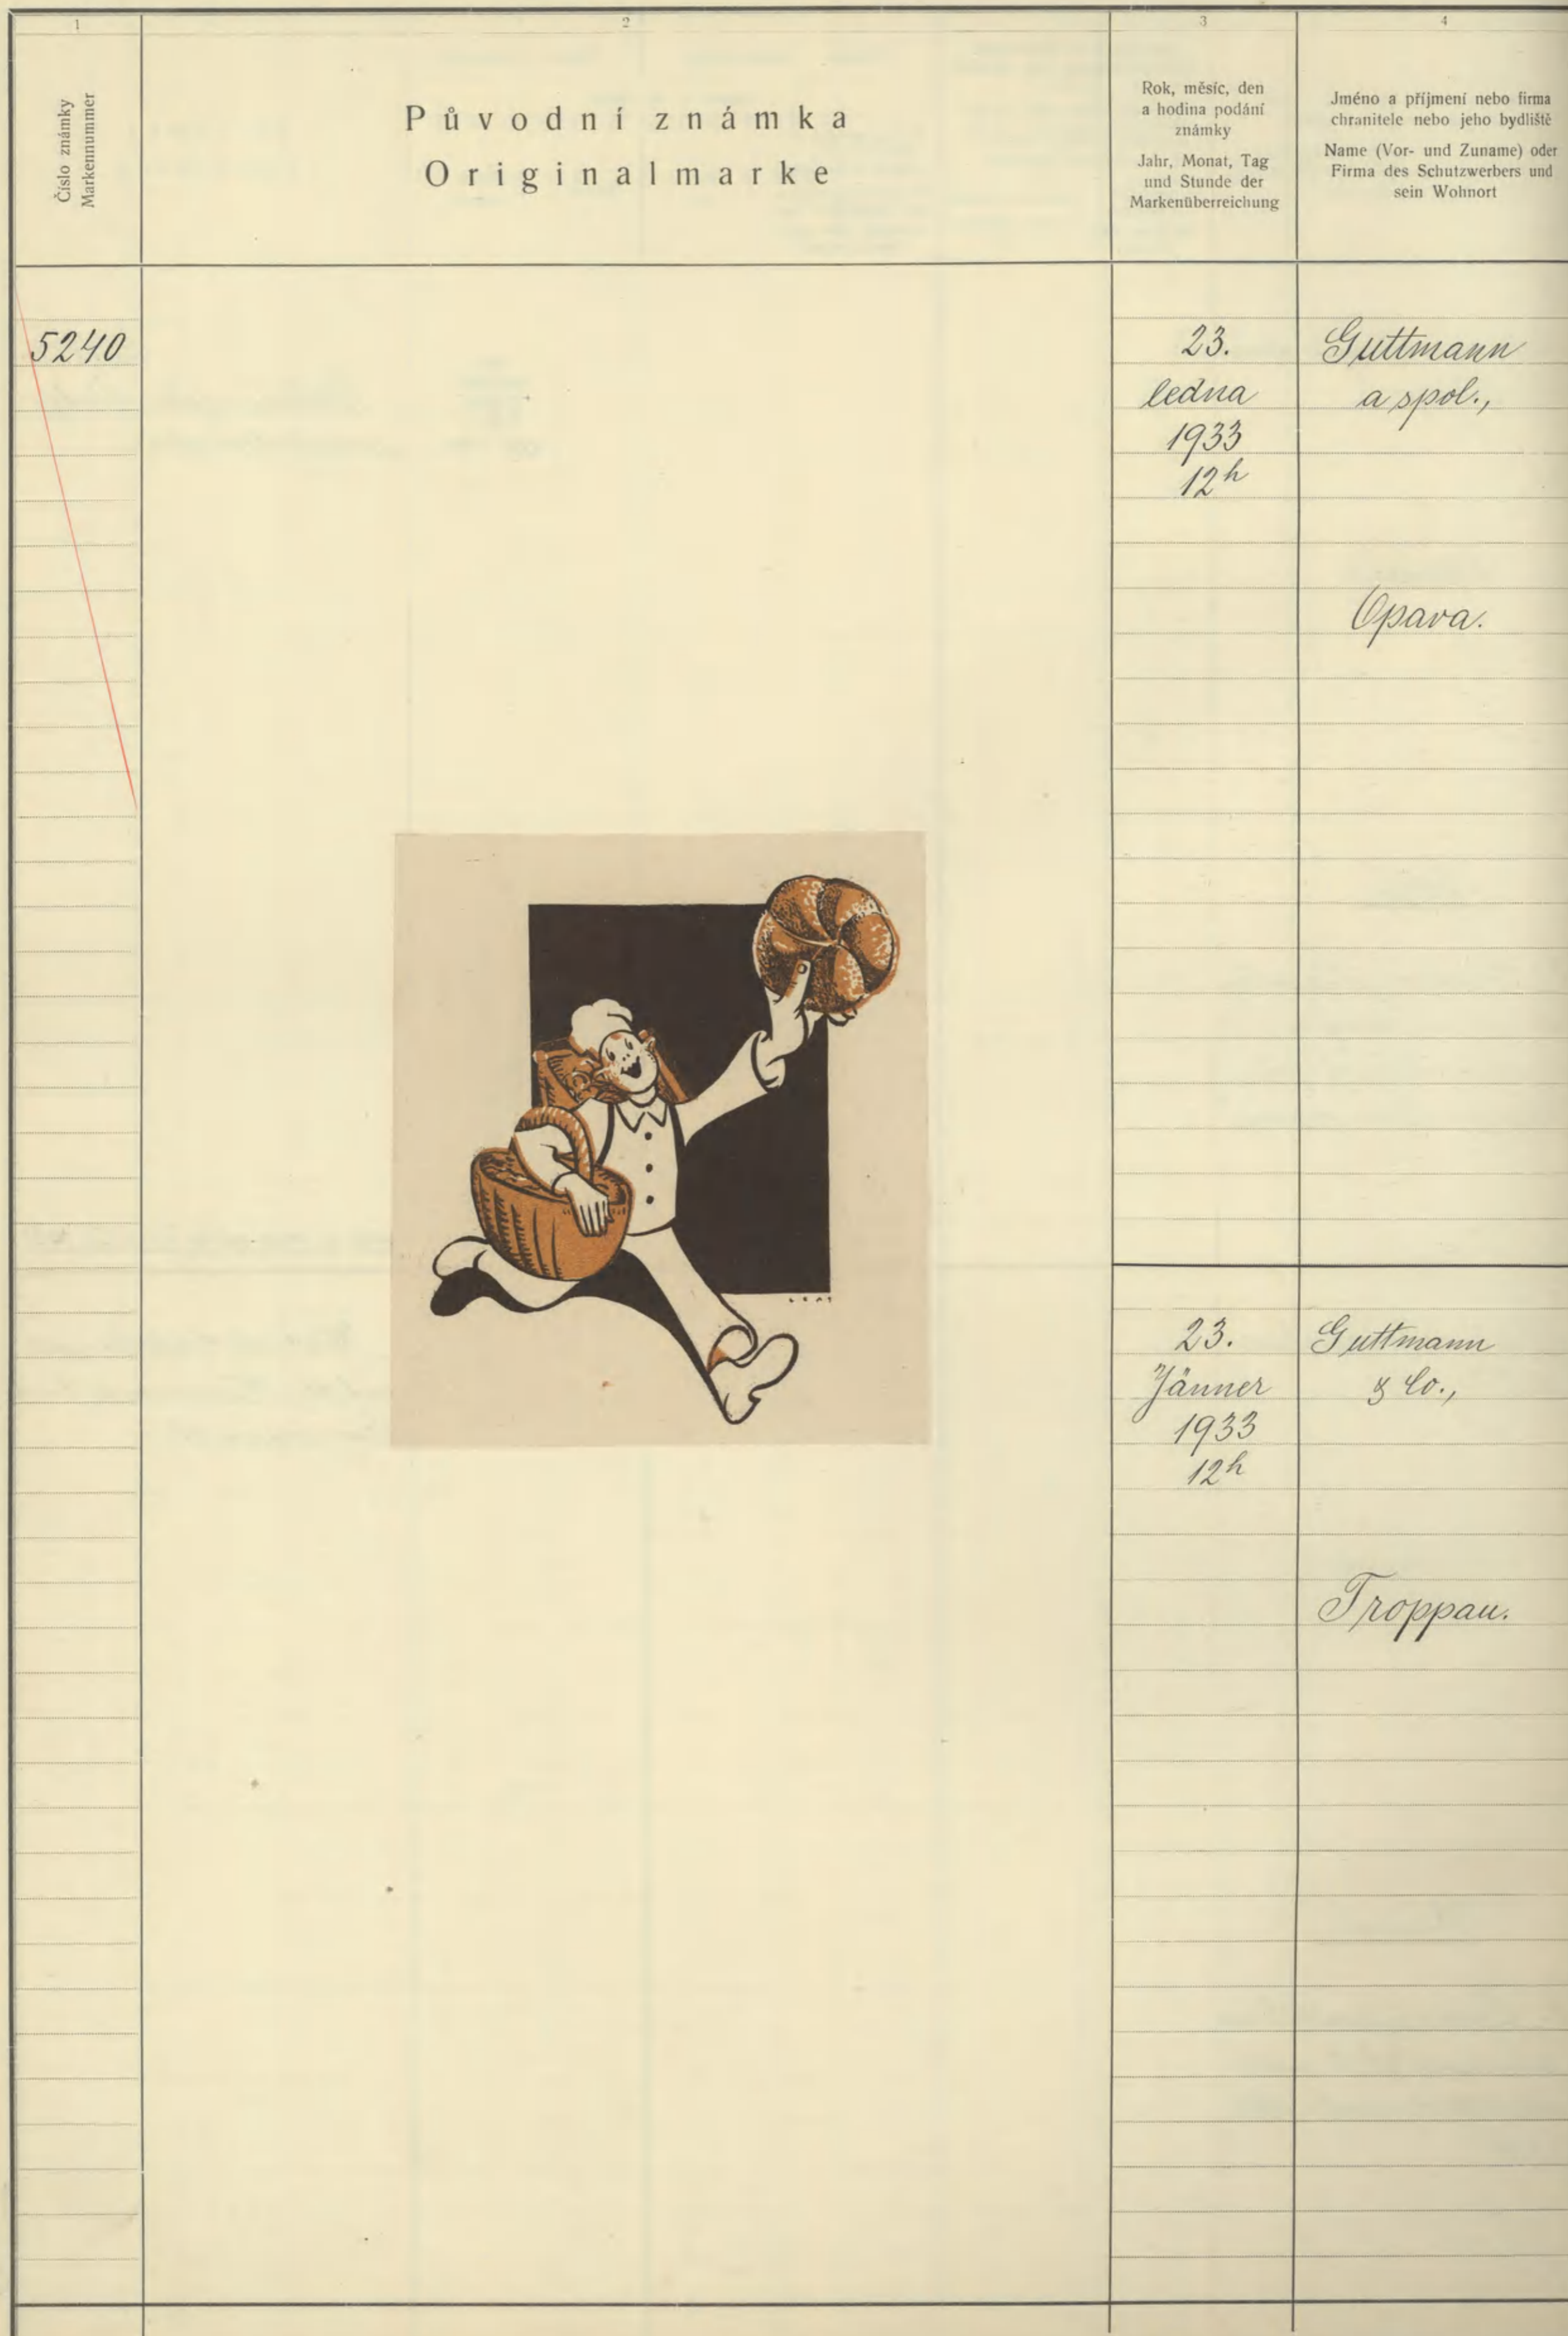 1
2
3
4
Číslo známky
Markennummer
Původní známka
Originalmarke
Rok, měsíc, den
a hodina podání
známky
Jahr, Monat, Tag
und Stunde der
Markenüberreichung
Jméno a příjmení nebo firma
chranitele nebo jeho bydliště
Name (Vor- und Zuname) oder
Firma des Schutzwerbers und
sein Wohnort
5240
23.
ledna
1933
12h
Guttmann
a spol.,
Opava.
23.
Jänner
1933
12h
Guttmann
& Co.,
Troppau.